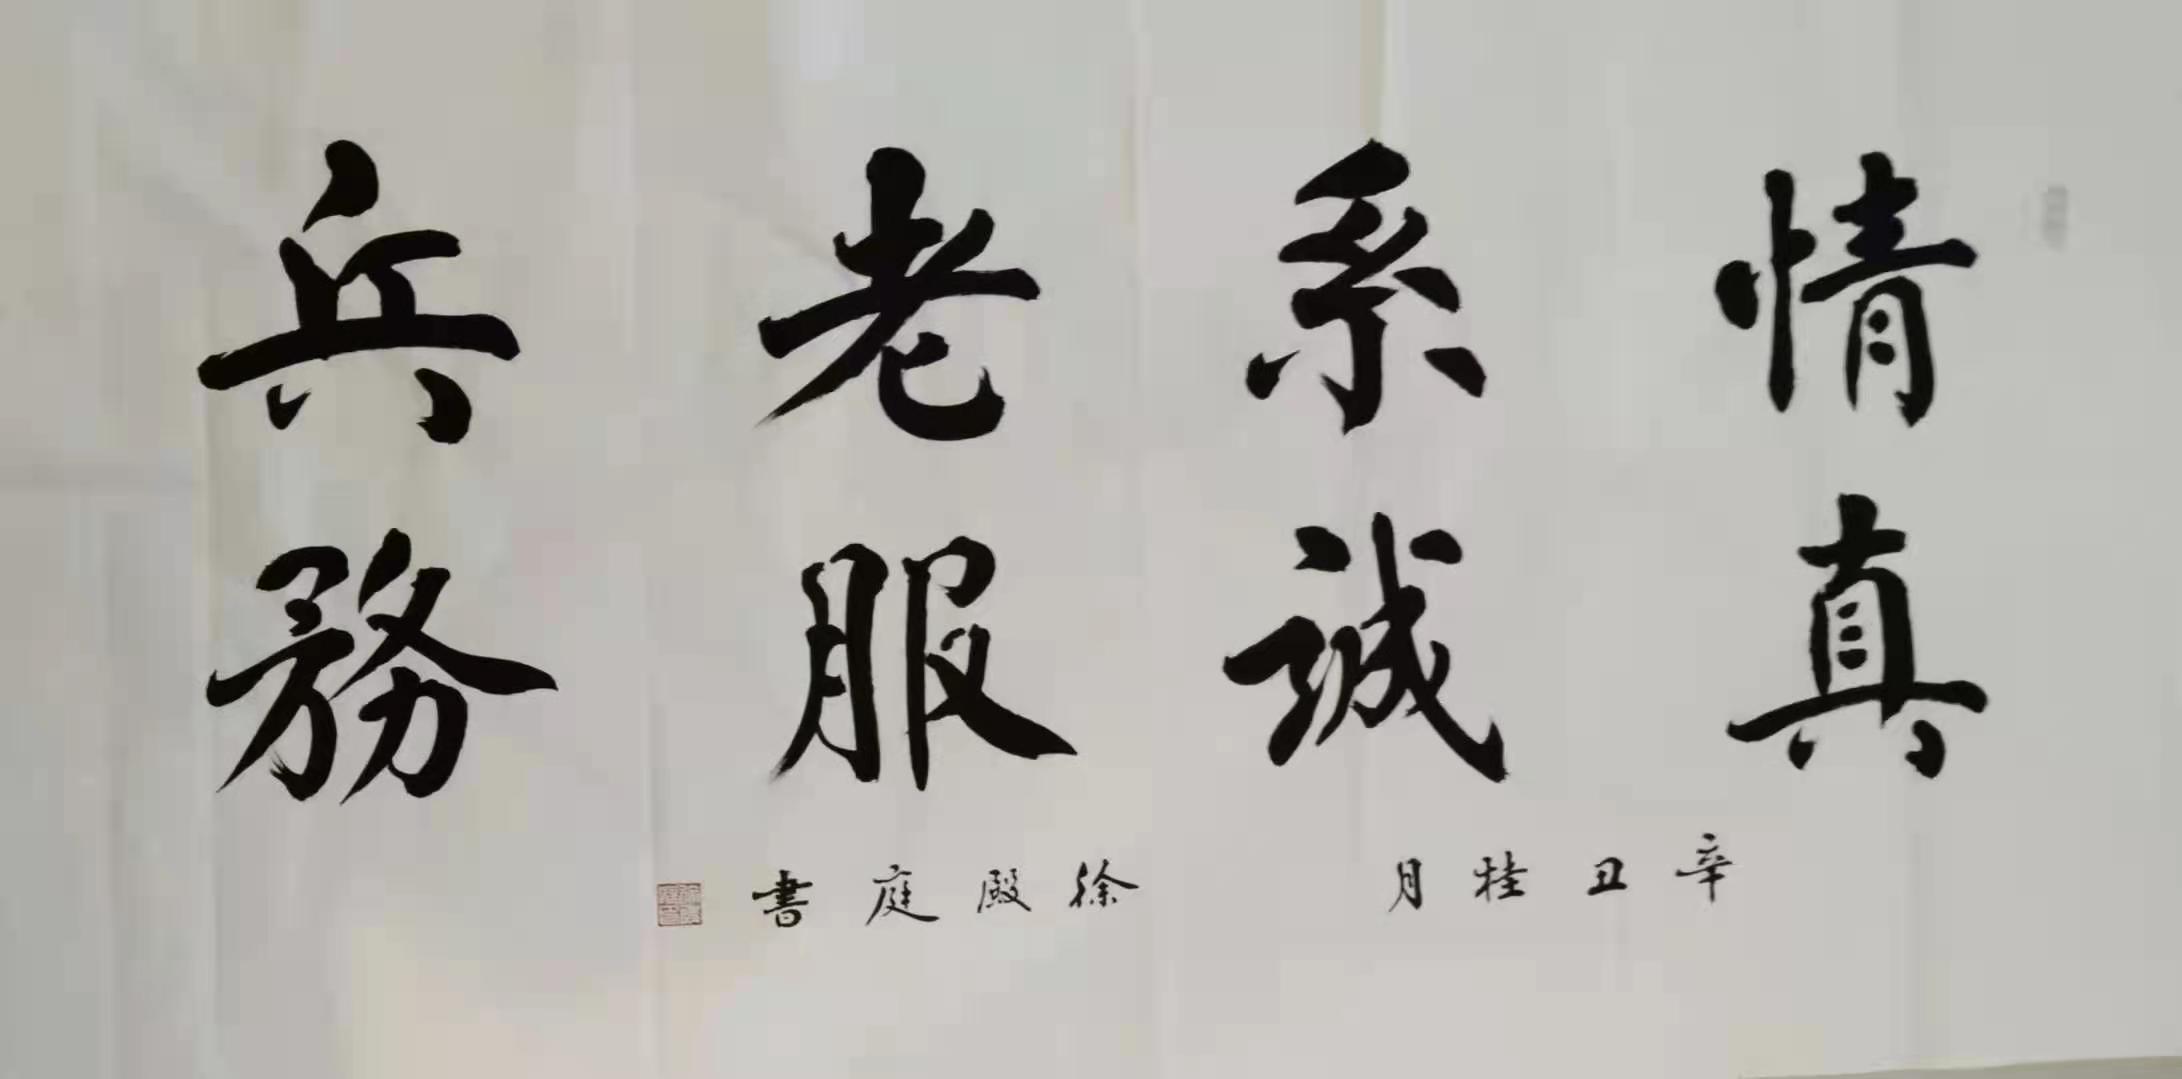 情系老兵
真誠服務
辛丑桂月
徐殿庭書